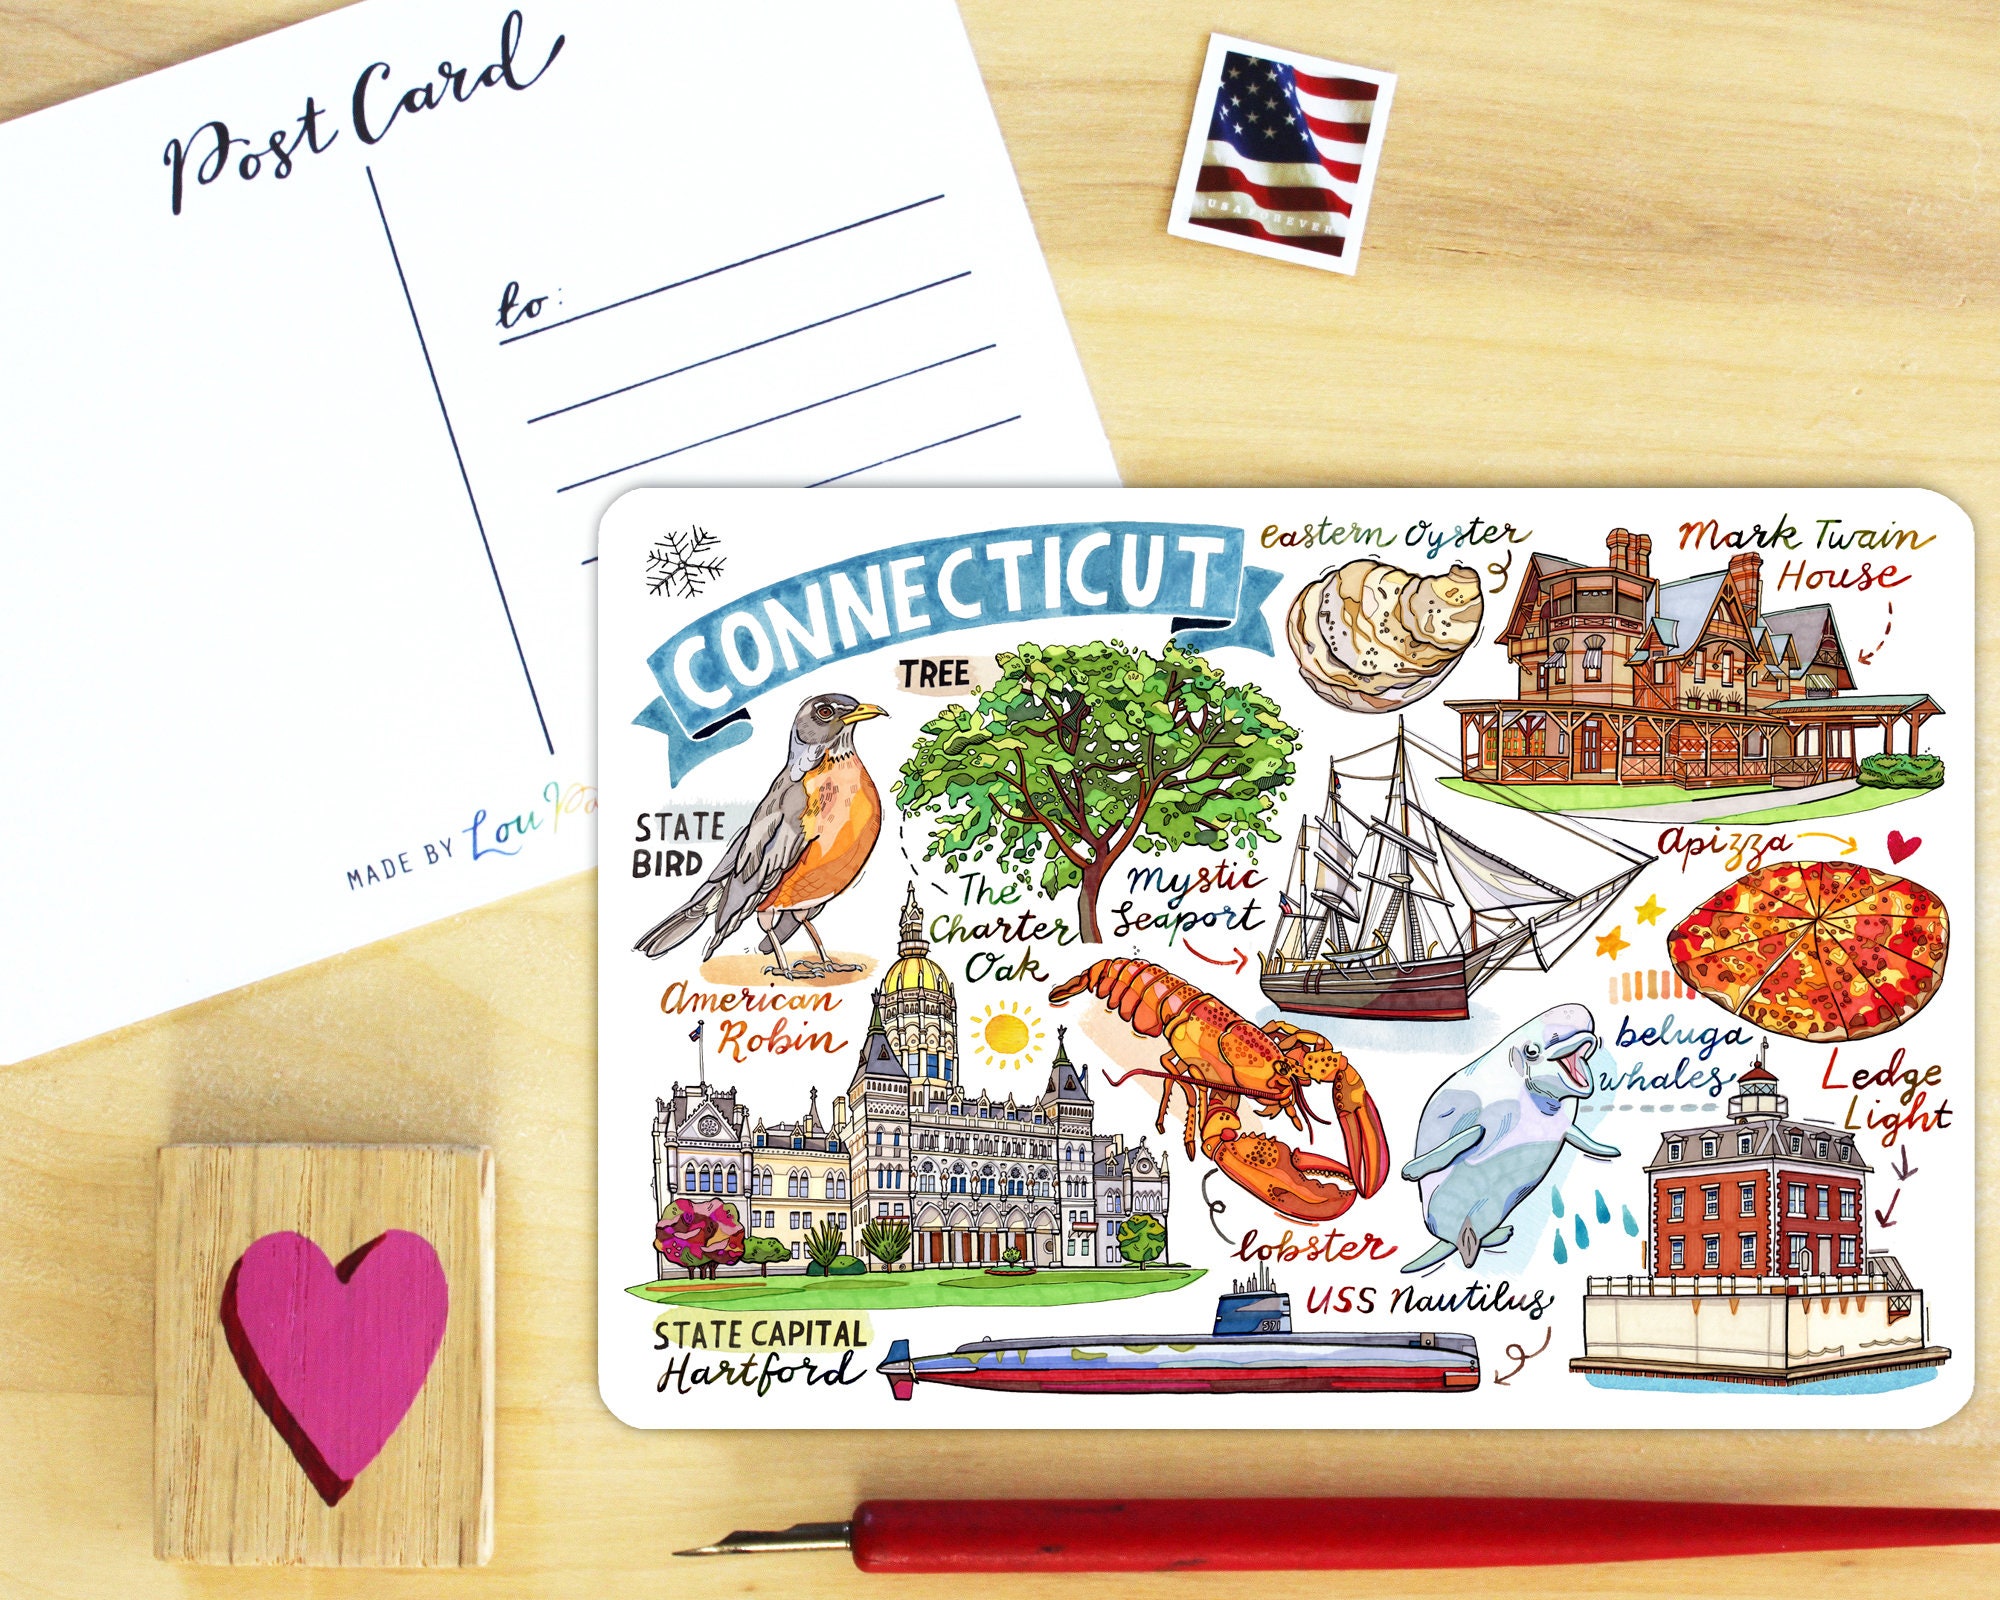 Post Card
to:
MADE BY Lou
USA FOREVER
CONNECTICUT
eastern oyster
Mark Twain
House
TREE
STATE
BIRD
American
Robin
The
Charter
Oak
Mystic
Seaport
apizza
beluga
whales
Ledge
Light
lobster
USS Nautilus
571
STATE CAPITAL
Hartford